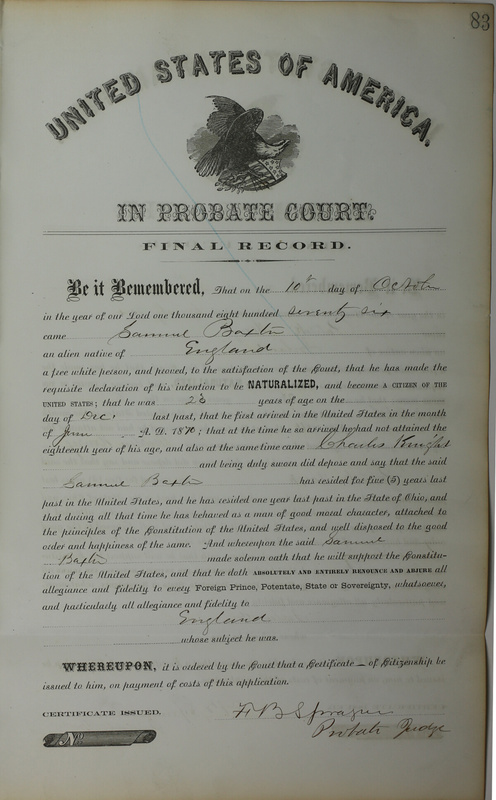 83
UNITED STATES OF AMERICA.
IN PROBATE COURT.
FINAL RECORD.
Be it Remembered, That on the 10th day of October
in the year of our Lord one thousand eight hundred seventy six
came Samuel Baxter
an alien native of England
a free white person, and proved, to the satisfaction of the Court, that he has made the
requisite declaration of his intention to be NATURALIZED, and become A CITIZEN OF THE
UNITED STATES; that he was 23 years of age on the
day of Dec. last past, that he first arrived in the United States in the month
of June A. D. 1870; that at the time he so arrived he had not attained the
eighteenth year of his age, and also at the same time came Charles Knight
and being duly sworn did depose and say that the said
Samuel Baxter has resided for five (5) years last
past in the United States, and he has resided one year last past in the State of Ohio, and
that during all that time he has behaved as a man of good moral character, attached to
the principles of the Constitution of the United States, and well disposed to the good
order and happiness of the same. And whereupon the said Samuel
Baxter made solemn oath that he will support the Constitu-
tion of the United States, and that he doth ABSOLUTELY AND ENTIRELY RENOUNCE AND ABJURE all
allegiance and fidelity to every Foreign Prince, Potentate, State or Sovereignty, whatsoever,
and particularly all allegiance and fidelity to
England
whose subject he was.
WHEREUPON, it is ordered by the Court that a Certificate of Citizenship be
issued to him, on payment of costs of this application.
CERTIFICATE ISSUED. F B Sprague
Probate Judge